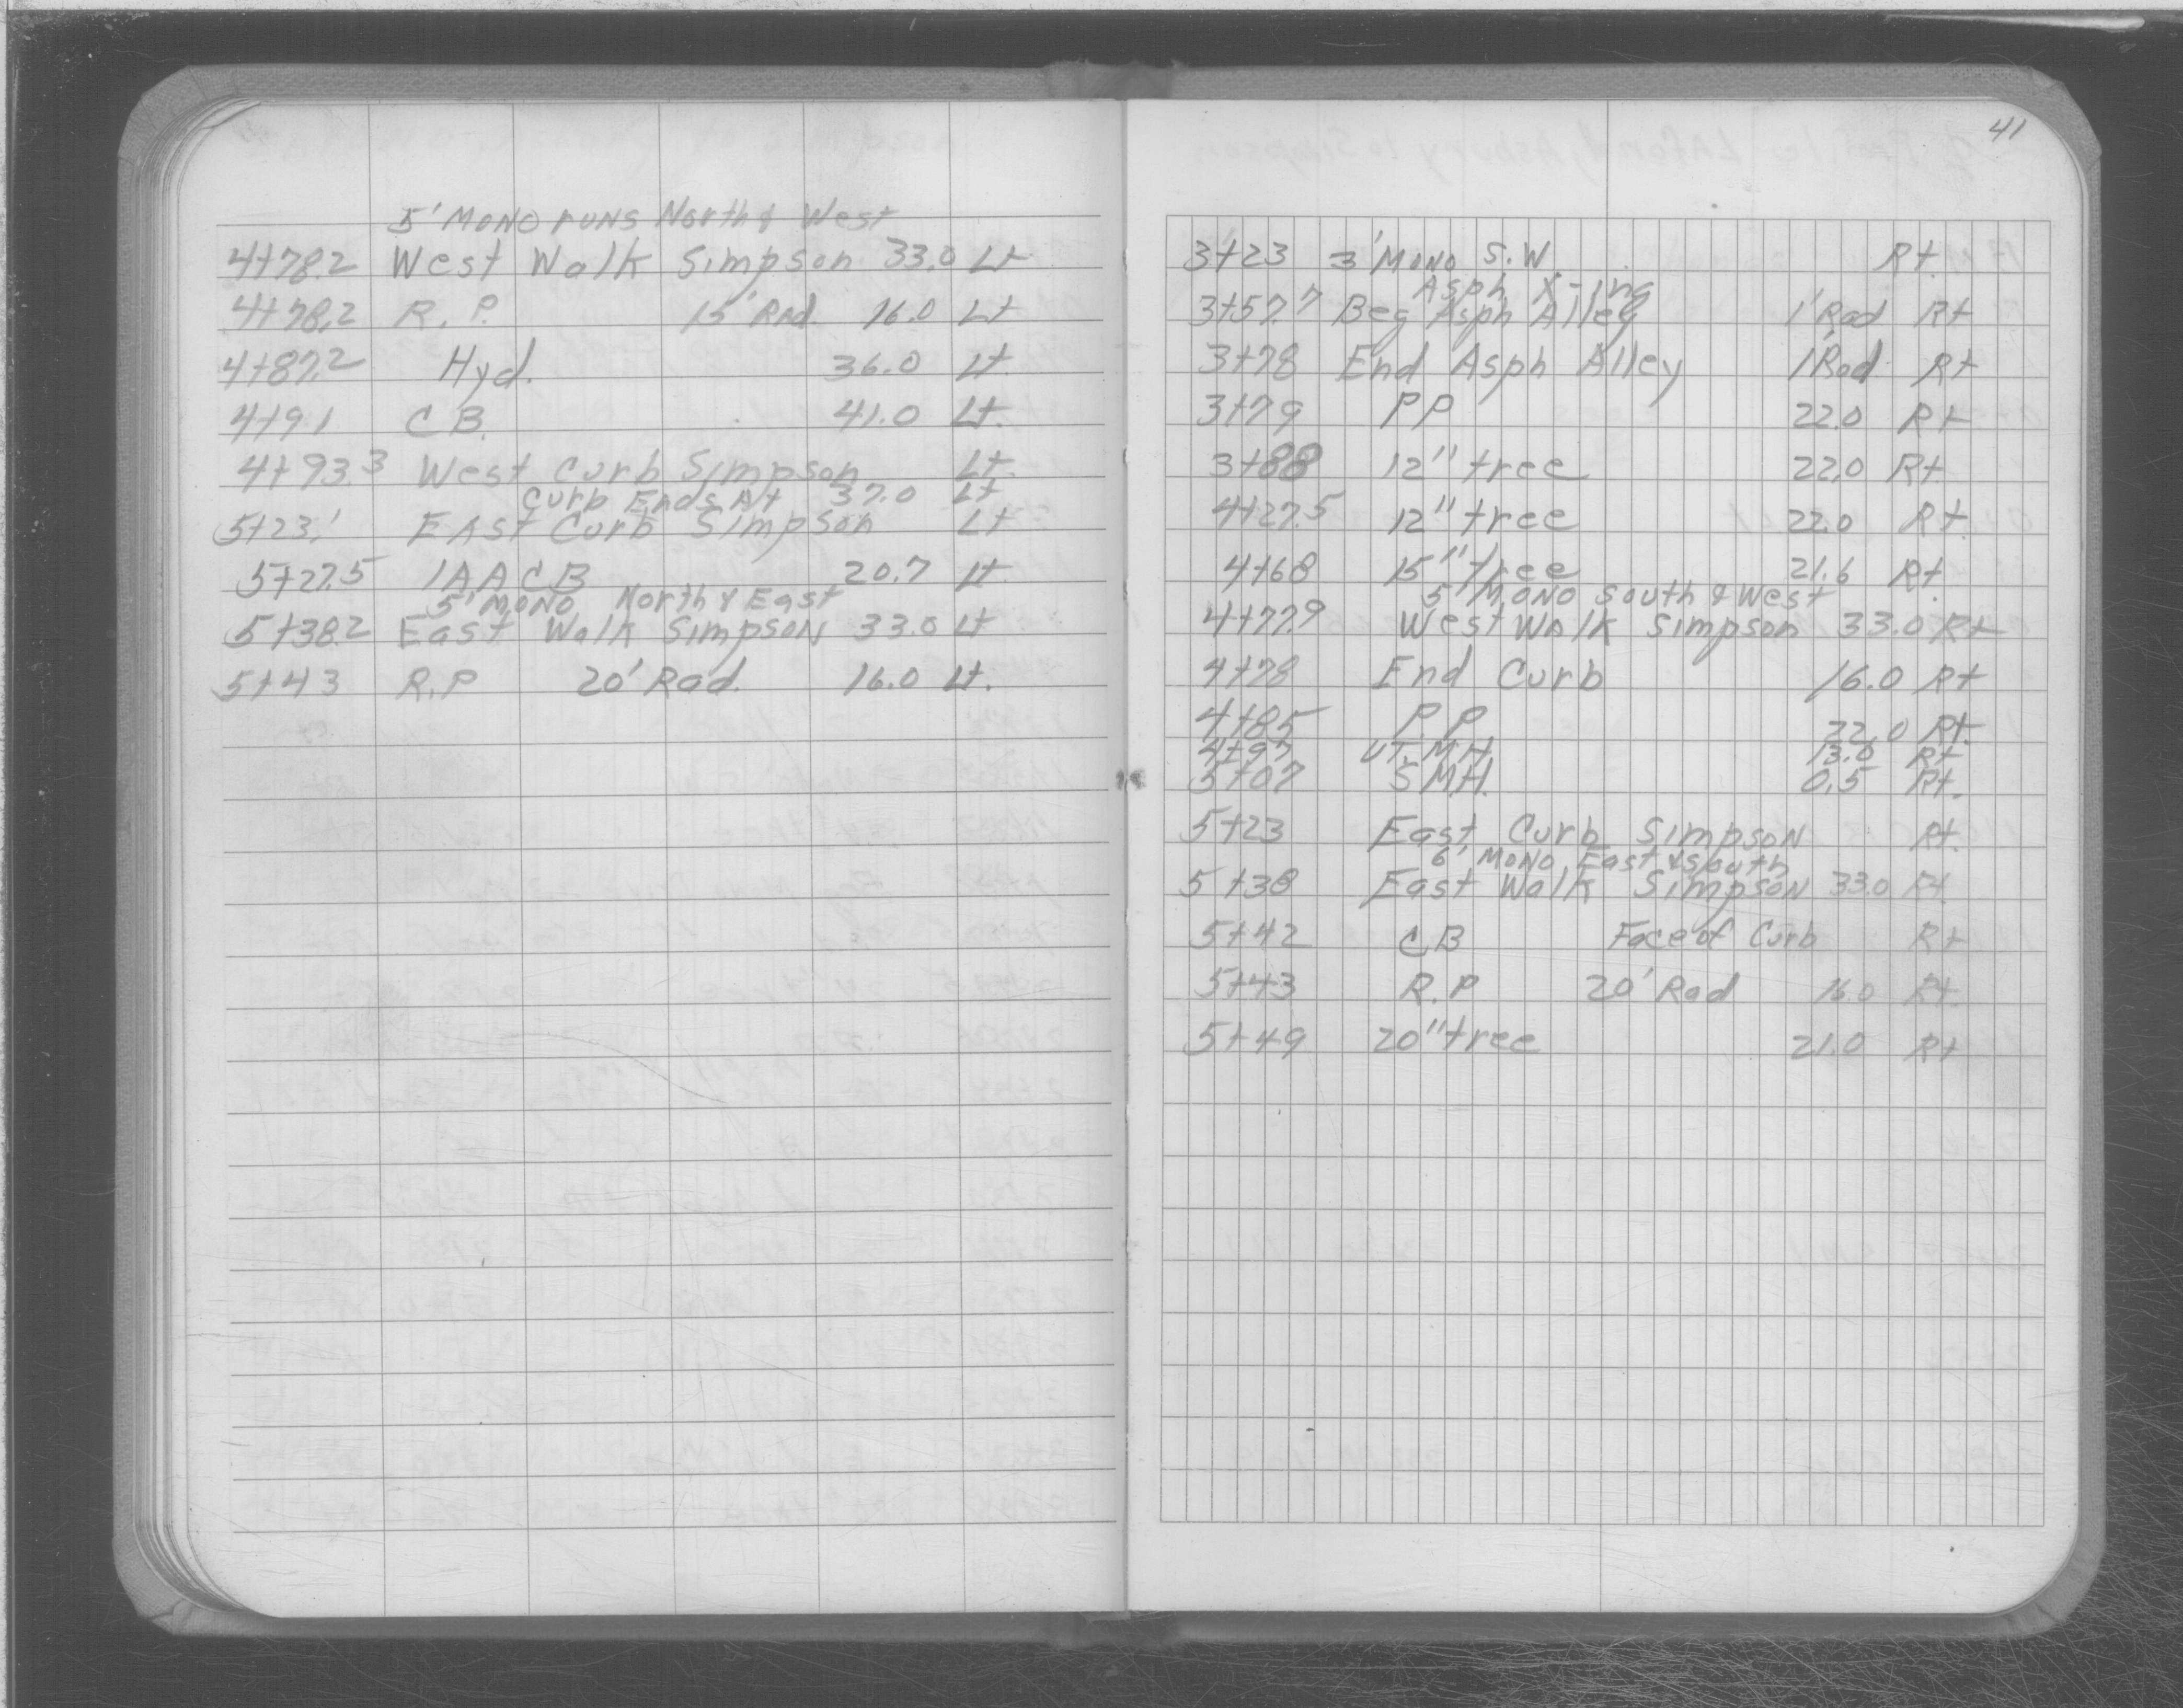 5' MONO runs North & West
4+78.2 West Walk Simpson 33.0 Lt
4+78.2 R.P. 15' Rad. 16.0 Lt
4+87.2 Hyd. 36.0 Lt
4+91 CB. 41.0 Lt.
4+93.3 West Curb Simpson Lt.
Curb Ends At 37.0 Lt
5+23.1 East Curb Simpson Lt
5+27.5 1AACB 20.7 Lt
5' MONO North & East
5+38.2 East Walk Simpson 33.0 Lt
5+43 R.P 20' Rad. 16.0 Lt.
41
3+23 3' Mono S.W. Rt.
Asph X-ing
3+57.7 Beg Asph Alley 1' Rad Rt
3+78 End Asph Alley 1' Rad Rt
3+79 PP 22.0 Rt
3+88 12" tree 22.0 Rt.
4+27.5 12" tree 22.0 Rt.
4+68 15" tree 21.6 Rt.
5' MONO South & West
4+77.9 West Walk Simpson 33.0 Rt
4+78 End Curb 16.0 Rt
4+85 P.P 22.0 Rt.
4+97 UT.M.H. 13.0 Rt
5+07 SMH. 0.5 Rt.
5+23 East Curb Simpson Rt.
6' MONO East & South
5+38 East Walk Simpson 33.0 Rt
5+42 CB Face of Curb Rt
5+43 R.P 20' Rad 16.0 Rt
5+49 20" tree 21.0 Rt